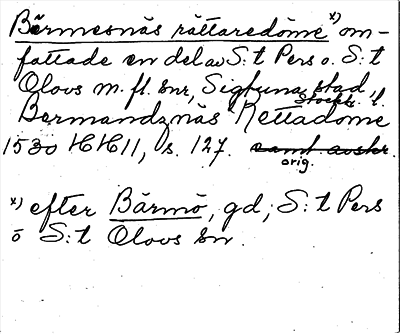 Bärmesnäs rättaredöme x) om-
fattade en del av S:t Pers o. S:t
Olovs m. fl. snr, Sigtuna stad,
Stockh. l.
Bermandznäs Rettadome
1530 HH 11, s. 127. samt avskr.
orig.
x) efter Bärmö, gd, S:t Pers
o S:t Olovs sn.